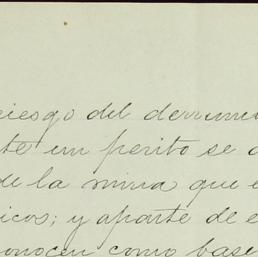 riesgo del derrum
te un perito se
de la mina que e
icos; y aparte de e
onocen como base